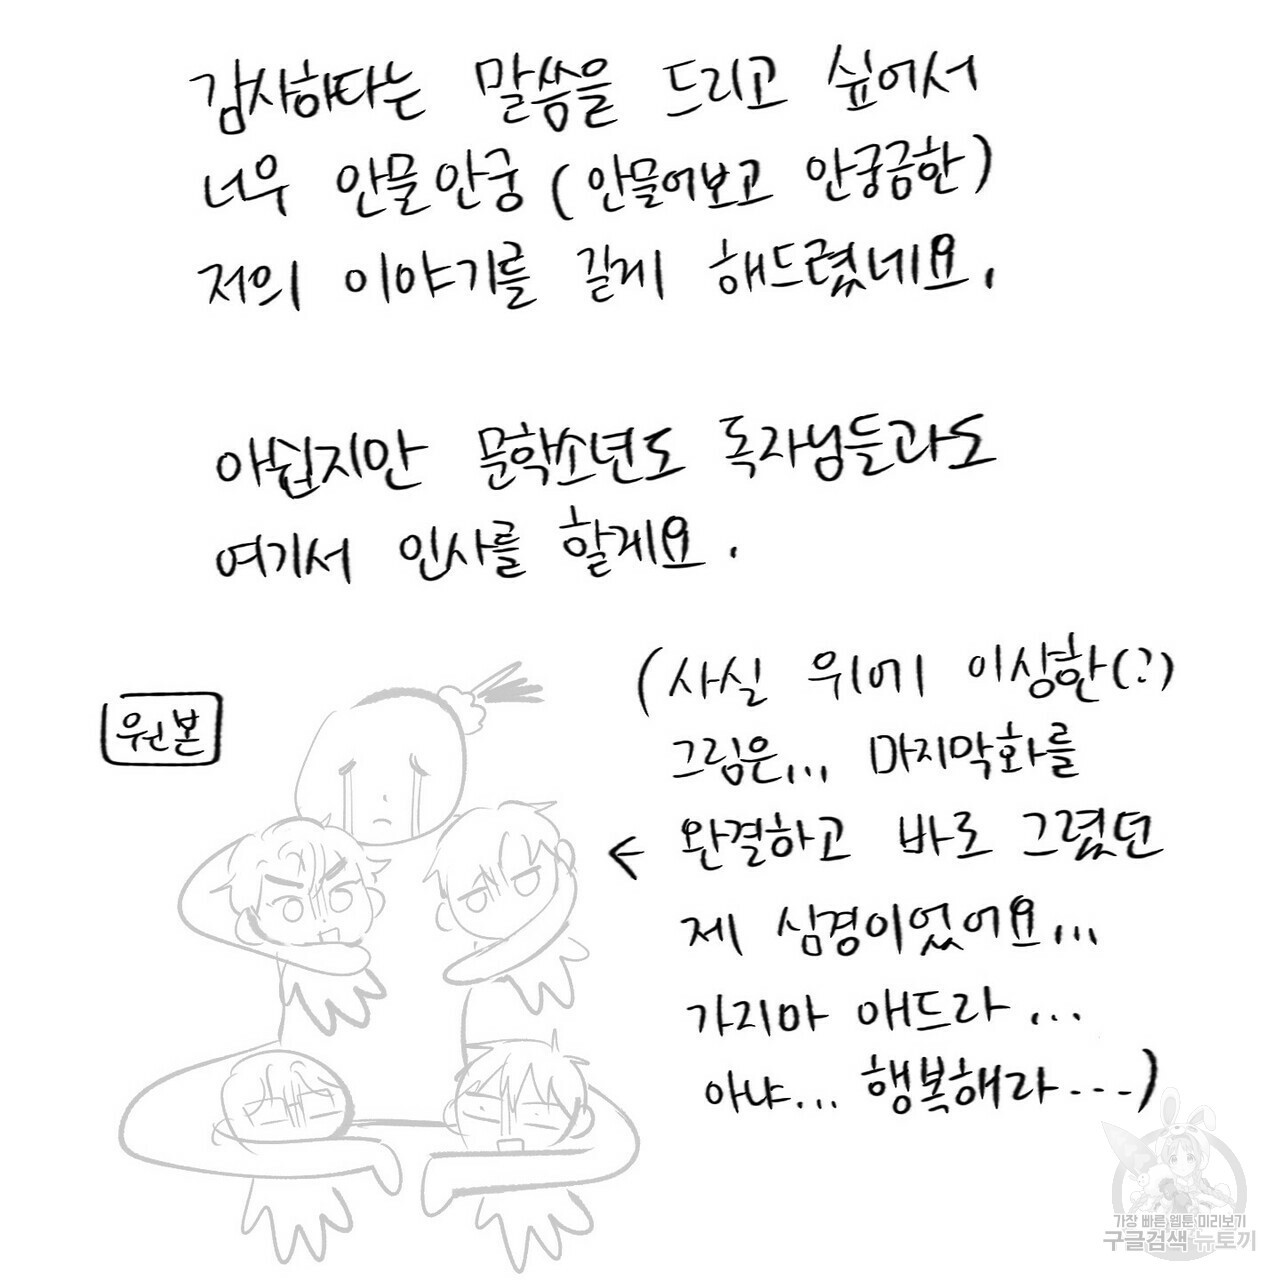 감사하다는 말씀을 드리고 싶어서
너우 안물안궁 (안물어보고 안궁금한)
저의 이야기를 길게 해드렸네요.
아쉽지만 문학소년도 독자님들과도
여기서 인사를 할게요.
원본
(사실 위에 이상한(?)
그림은... 마지막화를
← 완결하고 바로 그렸던
제 심경이었어요...
가지마 애드라...
아냐... 행복해라---)
가장 빠른 웹툰 미리보기
구글검색 뉴토끼